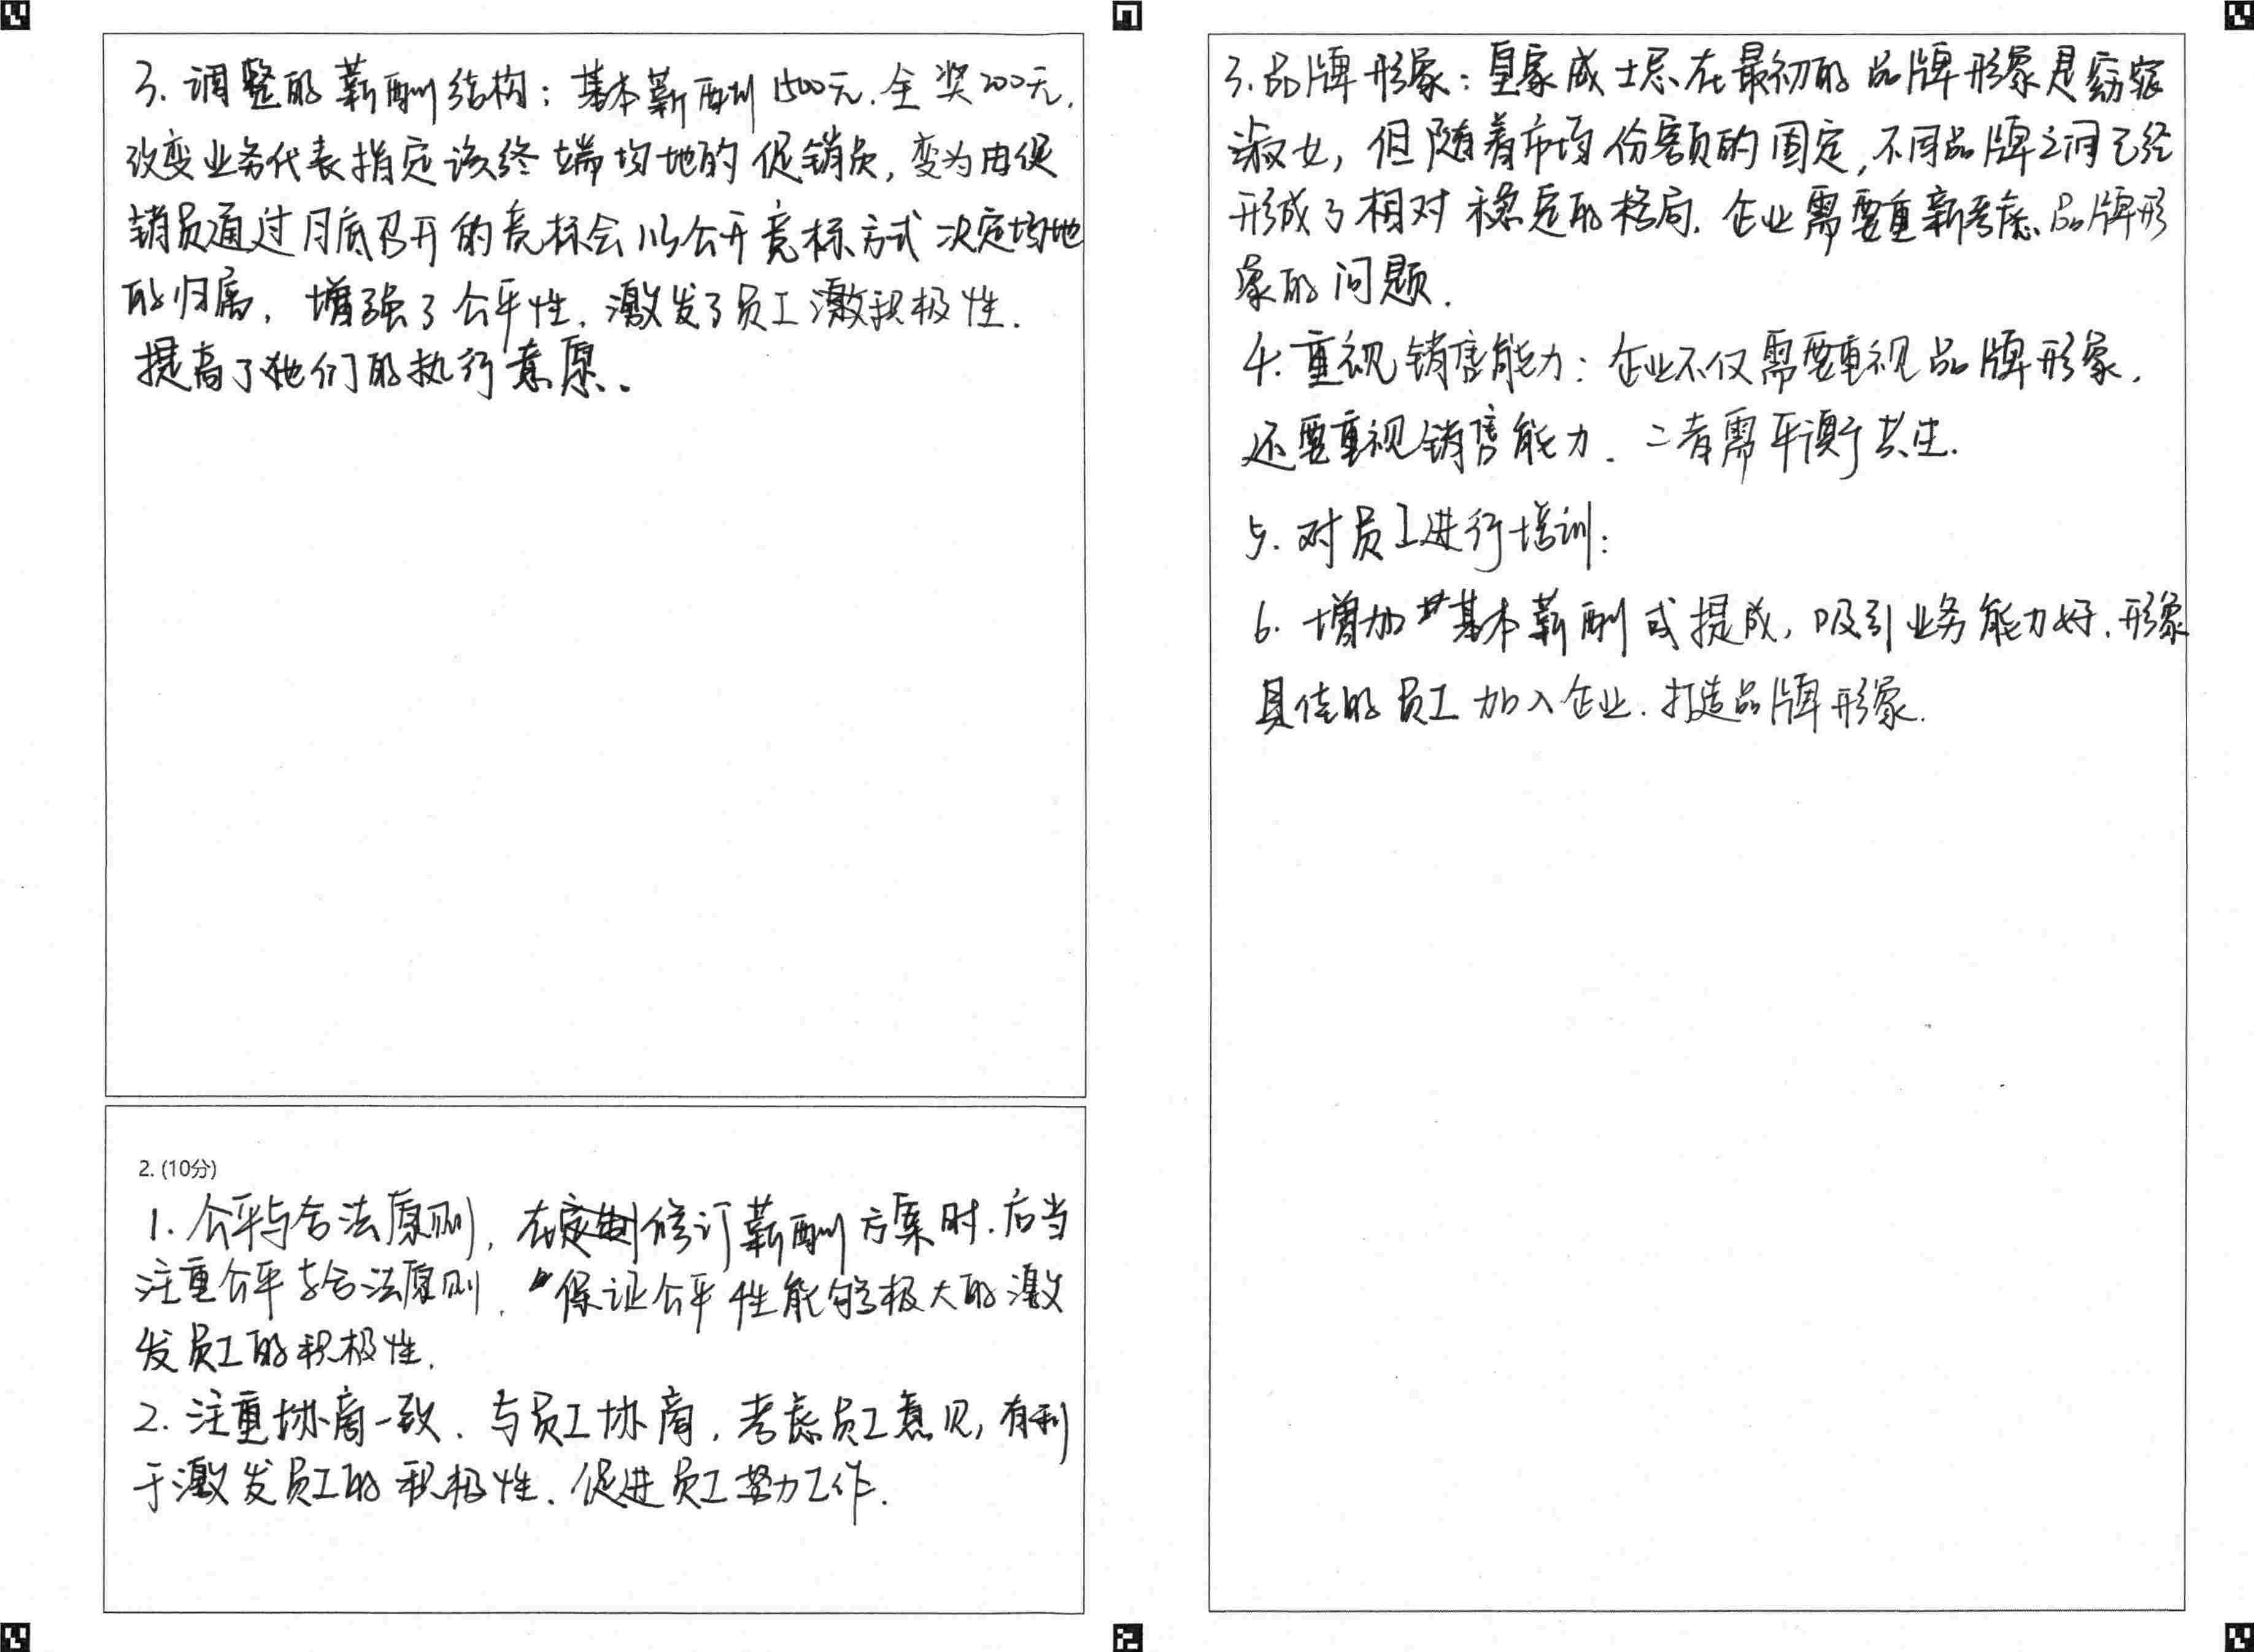 3. 调整的薪酬结构：基本薪酬1500元，全奖200元，
改变业务代表指定该终端场地的促销员，变为由促
销员通过月底召开的竞标会以公开竞标方式决定场地
的归属，增强了公平性，激发了员工激积极性．
提高了她们的执行意愿。
2. (10分)
1. 公平与合法原则，在修订薪酬方案时，应当
注重公平与合法原则，保证公平性能够极大的激
发员工的积极性．
2. 注重协商一致．与员工协商，考虑员工意见，有利
于激发员工的积极性．促进员工努力工作．
3. 品牌形象：皇家威士忌在最初的品牌形象是窈窕
淑女，但随着市场份额的固定，不同品牌之间已经
形成了相对稳定的格局，企业需要重新考虑品牌形
象的问题．
4. 重视销售能力：企业不仅需要重视品牌形象，
还要重视销售能力．二者需平衡共生．
5. 对员工进行培训：
6. 增加基本薪酬或提成，吸引业务能力好、形象
具佳的员工加入企业．打造品牌形象．